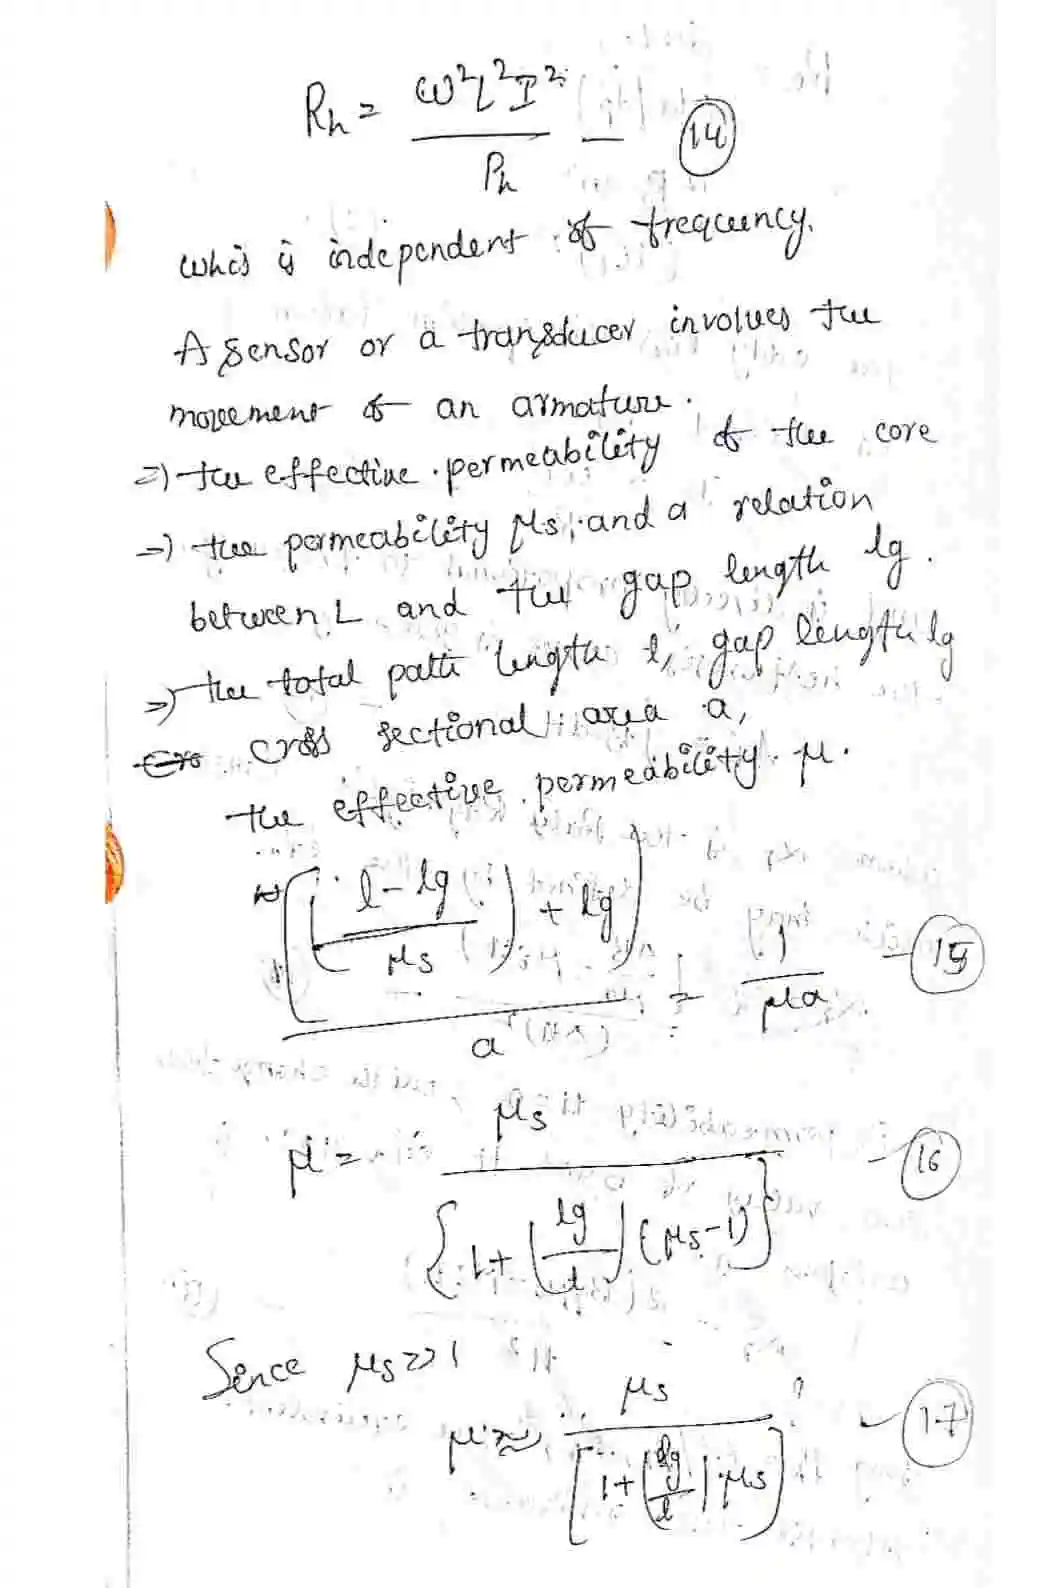 Rh = ω²L²I² / Ph — (14)
whis is independent of frequency.
A sensor or a transducer involves the
movement of an armature.
=) the effective permeability of the core
=) the permeability μs, and a relation
between L and the gap length lg.
=) the total path length l, gap length lg
cross sectional area a,
the effective permeability μ.
[((l - lg) / μs) + lg] / a = l / μa — (15)
μ = μs / {1 + (lg / l)(μs - 1)} — (16)
Since μs >> 1
μ ≈ μs / [1 + (lg / l) μs] — (17)